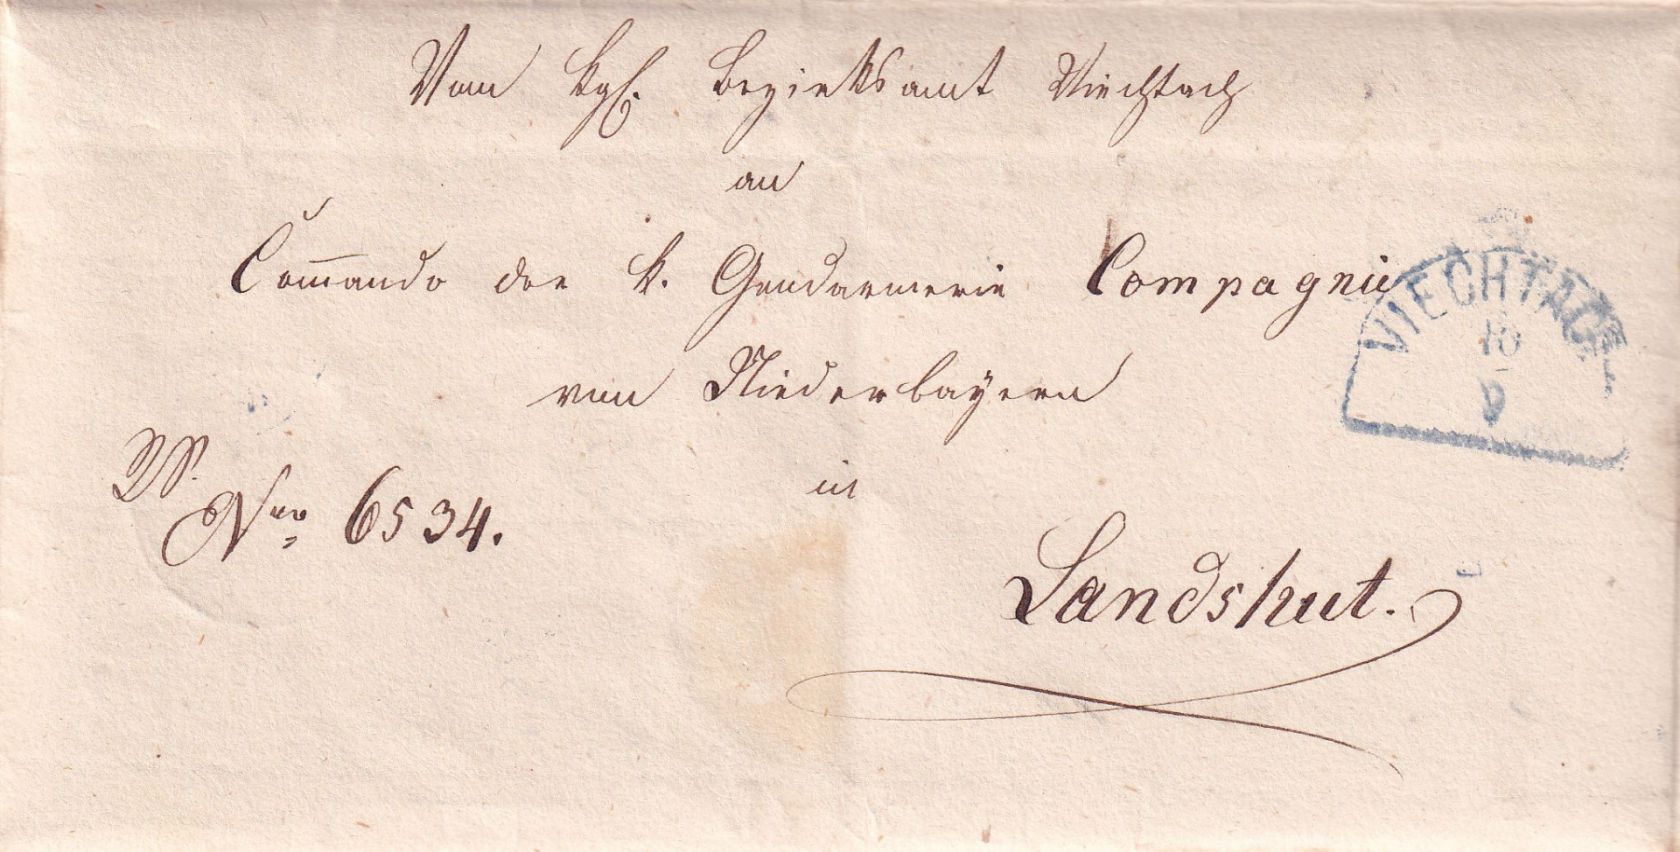 Vom kgl. Bezirksamt Viechtach
an
Com̅ando der k. Gendarmerie Compagnie
von Niederbayern
in
Landshut.
Nro 6534.
VIECHTACH
16